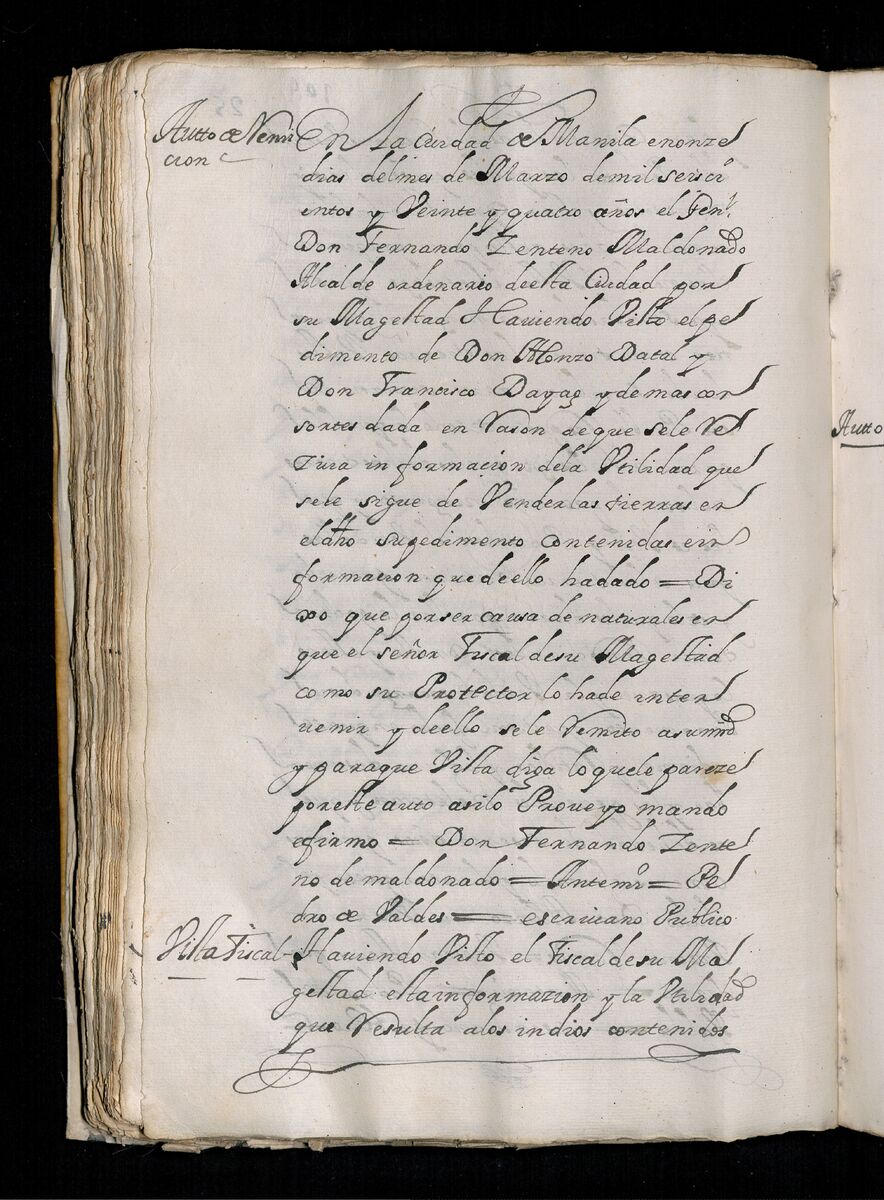 Autto de Remi
cion
En la ciudad de Manila en onze
dias del mes de Marzo de mil seisci
entos y Veinte y quatro años el
Don Fernando Zenteno Maldonado
Alcalde ordinario de esta Ciudad por
su Magestad Haviendo Visto el pe
dimento de Don Alonzo Datal y
Don Francisco Dayag y demas con
sortes dada en Rason de que se le Re
ziva informacion dela Vtilidad que
sele sigue de Vender las tierras en
el dho su pedimento contenidas e in
formacion que de ello ha dado = Di
xo que por ser causa de naturales en
que el señor Fiscal de su Magestad
como su Protector lo ha de inter
uenir y de ello se le Remito a su md
y para que Vista diga lo que le pareze
por este auto asi lo Proueyo mando
e firmo = Don Fernando Zente
no de maldonado = Ante mi = Pe
dro de Valdes = escriuano Publico
Vista Fiscal - Haviendo Visto el Fiscal de su Ma
gestad esta informazion y la Vtilidad
que Resulta a los indios contenidos
Autto